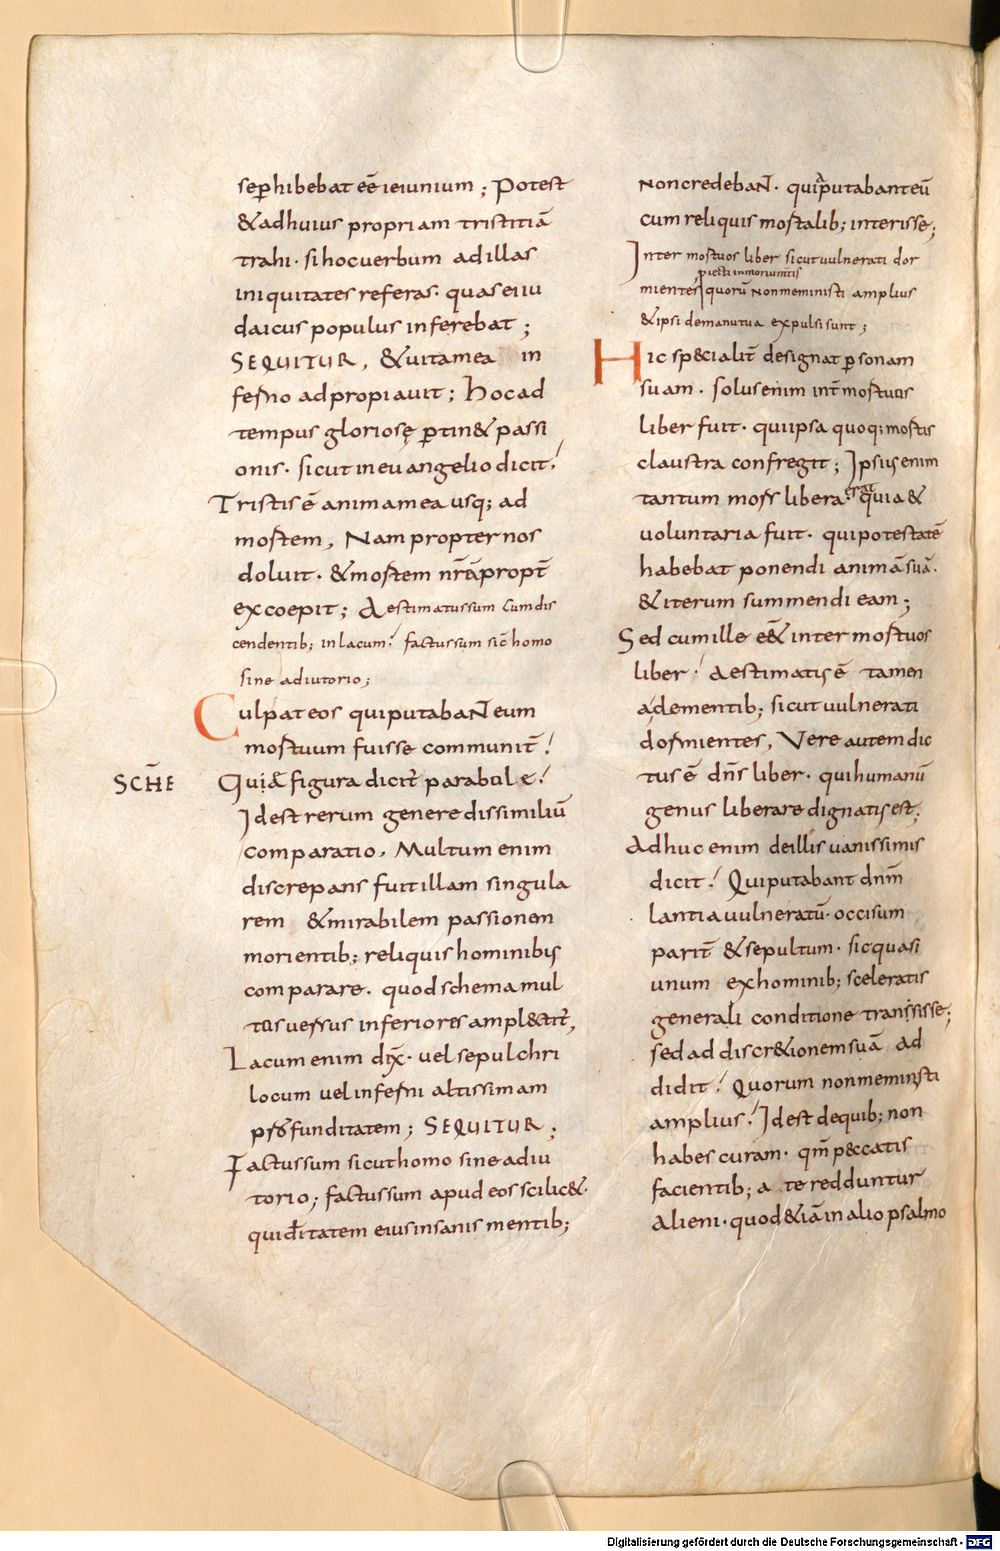 sep̲hibebat eē ieiunium ; Potest
&adhuius propriam tristitiā
trahi · si hoc uerbum ad illas
iniquitates referas · quas ei iu
daicus populus inferebat ;
SEQUITUR , & uita mea in
ferno adpropiauit ; Hoc ad
tempus gloriosę p̲tin& passi
onis · sicut in euangelio dicit !
Tristis ē anima mea usq; ad
mortem , Nam propter nos
doluit · & mortem nr̄ā propt̄
excoepit ; Aestimatus sum cum dis
cendentib; in lacum ! factus sum sic̄ homo
sine adiutorio ;
Culpat eos qui putabaNt eum
mortuum fuisse communit̄ !
SCHE
Quia& figura dicit̄ parabule !
Id est rerum genere dissimiliū
comparatio , Multum enim
discrepans fuit illam singula
rem & mirabilem passionem
morientib; reliquis hominibus
comparare · quod schema mul
tus uersus inferiores ampl&tit̄ ,
Lacum enim dix̄ · uel sepulchri
locum uel inferni altissimam
profunditatem ; SEQUITUR ;
Factus sum sicut homo sine adiu
torio ; factus sum apud eos scilic& ·
 eius insanis mentib;
Non credebaNt · qui putabant eū
cum reliquis mortalib; interisse ;
Inter mortuos liber sicut uulnerati dor
piecti in monumtis
mientes quorū non meministi amplius
& ipsi de manu tua expulsi sunt ;
Hic sp&ialit̄ designat p̲sonam
suam · solus enim int̄ mortuos
liber fuit · qui ipsa quoq; mortis
claustra confregit ; Ipsius enim
erat
tantum mors libera · quia &
uoluntaria fuit · qui potestatē
habebat ponendi animā suā ·
& iterum summendi eam ;
Sed cum ille ēet inter mortuos
liber ! aestimatus ē tamen
a dementib; sicut uulnerati
dormientes , Vere autem dic
tus ē dn̄s liber · qui humanū
genus liberare dignatus est ;
Adhuc enim de illis uanissimis
dicit ! Qui putabant dn̄m
lantia uulneratū · occisum
parit̄ & sepultum · sic quasi
unum ex hominib; sceleratis
generali conditione transisse ;
sed ad discr&ionem suā ad
didit ! Quorum non meministi
amplius ! Id est de quib; non
habes curam · qm̄ peccatis
facientib; a te redduntur
alieni · quod & iā in alio psalmo
Digitalisierung gefördert durch die Deutsche Forschungsgemeinschaft - DFG